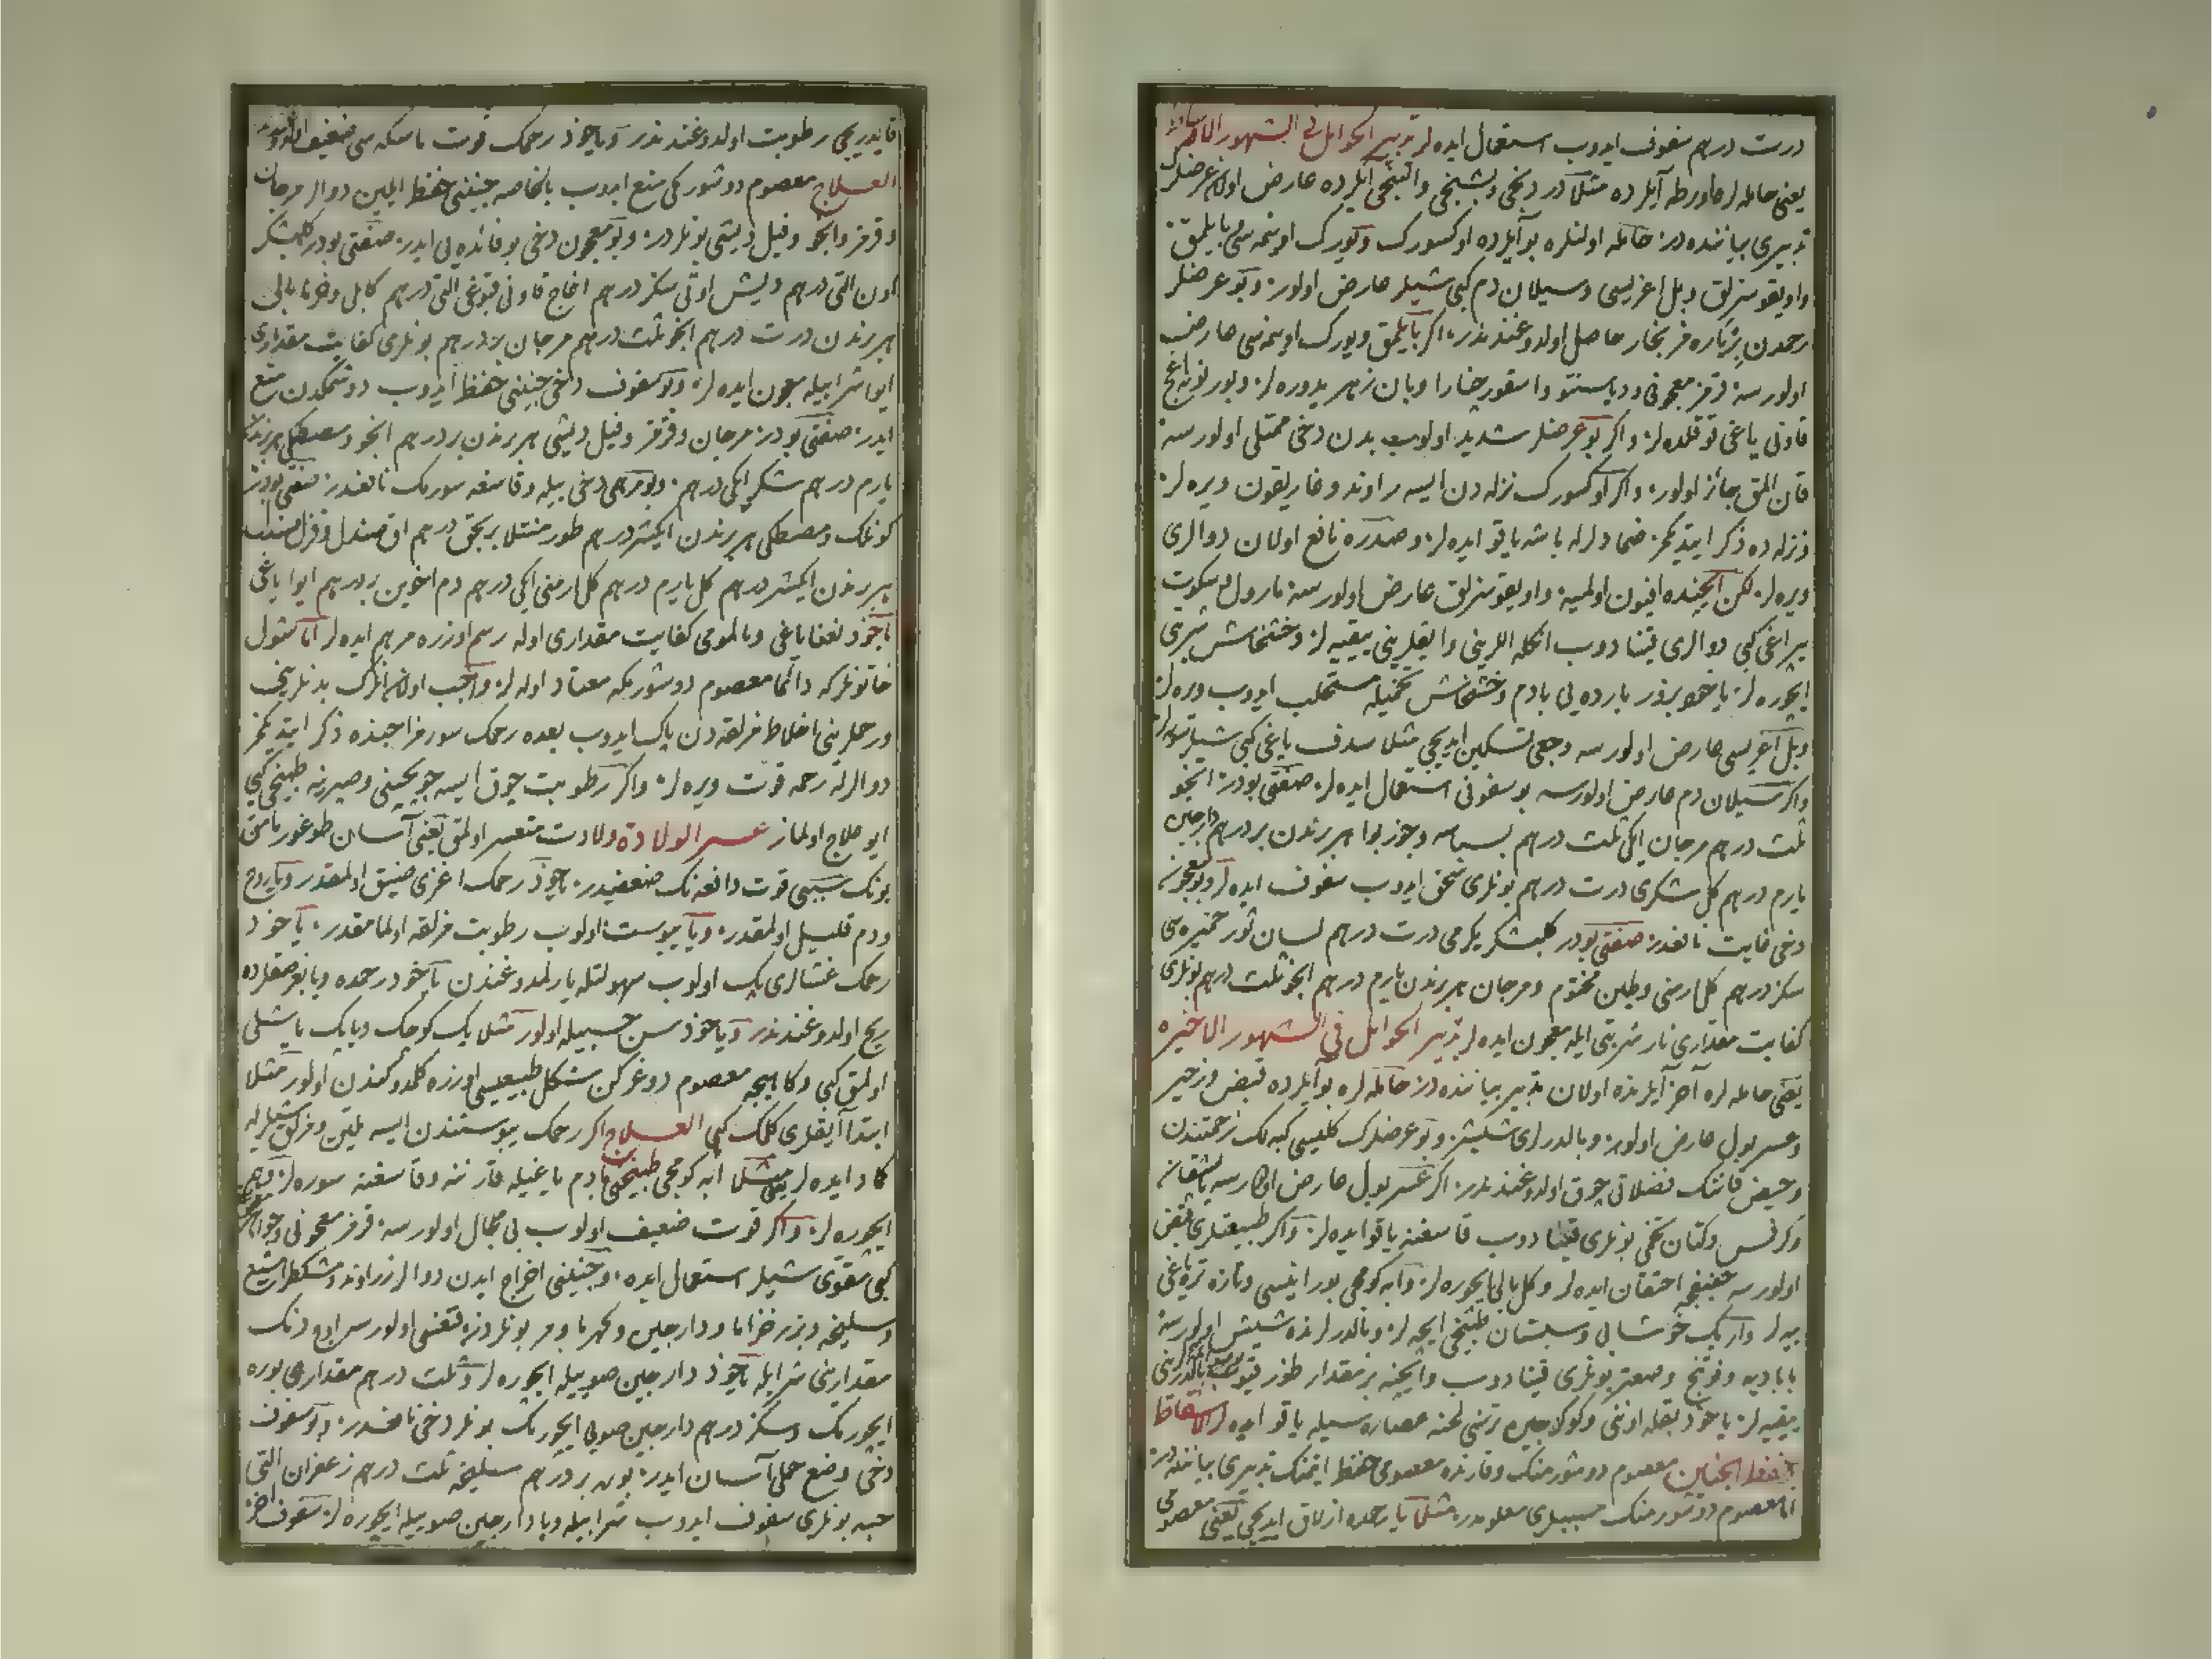 درت درهم سفوف ايدوب استعمال ايده لر تدبير الحوامل فى الشهور الاوسط
يعنى حامله لر اورطه آيلرده مثلا دردنجى وبشنجى والتنجى آيلرده عارض اولان عرضلرك
تدبيرى بياننده در حامله اولنلره بو آيلرده اوكسورك ويورك اوينمه سى بايلمق
واويقوسزلق وبل اغريسى وسيلان دم كبى شيلر عارض اولور وبو عرضلر
رحمدن بر پاره قر بخار حاصل اولدوغندندر اكر بايلمق ويورك اوينمه سى عارض
اولورسه قرمز معجونى ودياسنتو واسقورجنارا وبان زهر يدوره لر وبورنونه اغاج
قاونى ياغى قوقلده لر واكر بو عرضلر شديد اولوب بدن دخى ممتلى اولورسه
قان المق جائز اولور واكر اوكسورك نزله دن ايسه راوند وغاريقون ويره لر
ونزله ده ذكر ايتديكمز ضمادلرله باشه ياقو ايده لر وصدره نافع اولان دوالرى
ويره لر لكن ايچنده افيون اولميه واويقوسزلق عارض اولورسه مارول وسكوت
يپراغى كبى دوالرى قينادوب انكله اللرينى واياقلرينى ييقيه لر وخشخاش شربتى
ايچوره لر ياخود بزور بارده يى بادم وخشخاش تخميله مستحلب ايدوب ويره لر
وبل آغريسى عارض اولورسه وجعى تسكين ايديجى مثلا سدف ياغى كبى شيلر سوره لر
واكر سيلان دم عارض اولورسه بو سفوفى استعمال ايده لر صنعتى بودر انجو
ثلث درهم مرجان ايكى ثلث درهم بسباسه وجوز بوا هر برندن بر درهم دارچين
يارم درهم كل شكرى درت درهم بونلرى سحق ايدوب سفوف ايده لر وبو معجون
دخى غايت نافعدر صنعتى بودر كلبشكر يكرمى درت درهم لسان ثور خميره سى
سكز درهم كل ارمنى وطين مختوم ومرجان هر برندن يارم درهم انجو ثلث درهم بونلرى
كفايت مقدارى نار شربتى ايله معجون ايده لر تدبير الحوامل فى الشهور الاخيره
يعنى حامله لره آخر آيلرنده اولان تدبير بياننده در حامله لره بو آيلرده قبض وزحير
وعسر بول عارض اولور وبالدرلرى شيشر وبو عرضلرك كليسى كبه لك زحمتندن
وحيض قاننك فضلاتى چوق اولدوغندندر اكر عسر بول عارض اولورسه
وكرفس وكتان تخمى بونلرى قينادوب قاسغنه ياقو ايده لر واكر طبيعتلرى قبض
اولورسه خفيفجه احتقان ايده لر وكل بالى ايچوره لر وابه كومجى بوراينسى وتازه تره ياغى
ييه لر واريك خوشابى وسبستان طبيخى ايچه لر وبالدرلرنده شيش اولورسه
بابادیه وفوتنج وصعتر بونلرى قينادوب وايچنه بر مقدار طوز قيوب بالدرلرينى
ييقيه لر ياخود بقله اوننى وكوكرجين ترسنى لحنه عصاره سيله ياقو ايده لر الاسقاط
وحفظ الجنين معصوم دوشورمنك وقارنده معصومى حفظ ايتمنك تدبيرى بياننده در
اما معصوم دوشورمنك سببلرى معلومدر مثلا يا رحمده ازلاق ايديجى يعنى معصومى
قايديريجى رطوبت اولدوغندندر وياخود رحمك قوت ماسكه سى ضعيف اولدوغندندر
العلاج معصوم دوشورمكى منع ايدوب بالخاصه جنينى حفظ ايلين دوالر مرجان
وقرمز وانجو وفيل ديشى بونلردر وبو معجون دخى بو فائده يى ايدر صنعتى بودر كلبشكر
اون التى درهم ديش اوتى سكز درهم اغاج قاونى قبوغى التى درهم كابلى وخرما بالى
هر برندن درت درهم انجو ثلث درهم مرجان بر درهم بونلرى كفايت مقدارى
ايوا شرابيله معجون ايده لر وبو سفوف دخى جنينى حفظ ايدوب دوشمكدن منع
ايدر صنعتى بودر مرجان وقرمز وفيل ديشى هر برندن بر درهم انجو ومصطكى هر برندن
يارم درهم شكر ايكى درهم وبو مرهمى دخى بيله وقاسغه سورمك نافعدر صنعتى بودر
كونلك ومصطكى هر برندن ايكيشر درهم طورمنتلا بر بچق درهم اق صندل وقزل صندل
هر برندن ايكيشر درهم كل يارم درهم كل ارمنى ايكى درهم دم اخوين بر درهم ايوا ياغى
ياخود نعنا ياغى وبالمومى كفايت مقدارى اوله رسم اوزره مرهم ايده لر اما شول
خاتونلر كه دائما معصوم دوشورمكه معتاد اوله لر واجب اولان انلرك بدنلرينى
ورحملرينى اخلاط مزلقه دن پاك ايدوب بعده رحمك سوء مزاجنده ذكر ايتديكمز
دوالرله رحمه قوت ويره لر واكر رطوبت چوق ايسه چوب چينى وصبرينه طبيخى كبى
ايو علاج اولماز عسر الولادة ولادت متعسر اولمق يعنى آسان طوغورمامق
بونك سببى قوت دافعه نك ضعفيدر ياخود رحمك اغزى ضيق اولمقدر ويا روح
ودم قليل اولمقدر ويا يبوست اولوب رطوبت مزلقه اولمامقدر ياخود
رحمك غشالرى پك اولوب سهولتله يارلمدوغندن ياخود رحمده ويا بغرصقلرده
ريح اولدوغندندر وياخود سن حسبيله اولور مثلا پك كوچك ويا پك ياشلى
اولمق كبى وكاهيجه معصوم دوغركن شكل طبيعيسى اوزره كلمدوكندن اولور مثلا
ابتدا آياقلرى كلمك كبى العلاج اكر رحمك يبوستندن ايسه ملين ومزلق شيلر ايله
كماد ايده لر مثلا ابه كومجى طبيخى بادم ياغيله قارننه وقاسغنه سوره لر
ايچوره لر واكر قوت ضعيف اولوب بى مجال اولورسه قرمز معجونى وجواهر
كبى مقوى شيلر استعمال ايده لر وجنينى اخراج ايدن دوالر زراوند ومشكطرامشيع
وسليخه وبزر خزاما ودارچين وكهربا ومر بونلردر قنغيسى اولورسه اولسون
مقدارينى شرابله ياخود دارچين صوييله ايچوره لر وثلث درهم مقدارى بوره
ايچورمك وسكز درهم دارچين صويى ايچورمك بونلر دخى نافعدر وبو سفوف
دخى وضع حملى آسان ايدر بوره بر درهم سليخه ثلث درهم زعفران التى
حبه بونلرى سفوف ايدوب شرابيله ويا دارچين صوييله ايچوره لر سفوف آخر